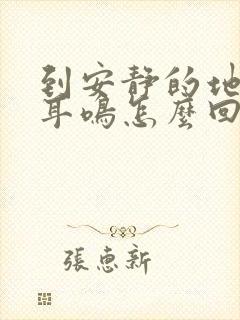 到安靜的地
耳鳴怎麼回
張惠新